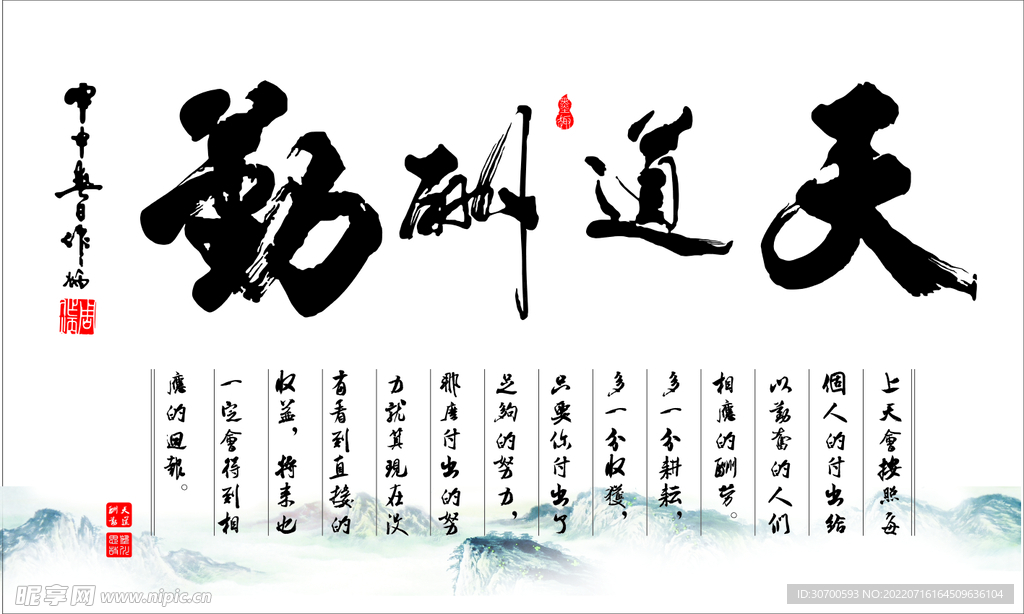 天道酬勤
上天會按照每
個人的付出給
以勤奮的人们
相應的酬劳。
多一分耕耘，
多一分收獲，
只要你付出了
足夠的努力，
那麼付出的努
力就算現在没
有看到直接的
收益，将来也
一定會得到相
應的迴報。
昵享网 www.nipic.cn
ID:30700593 NO:20220716164509636104